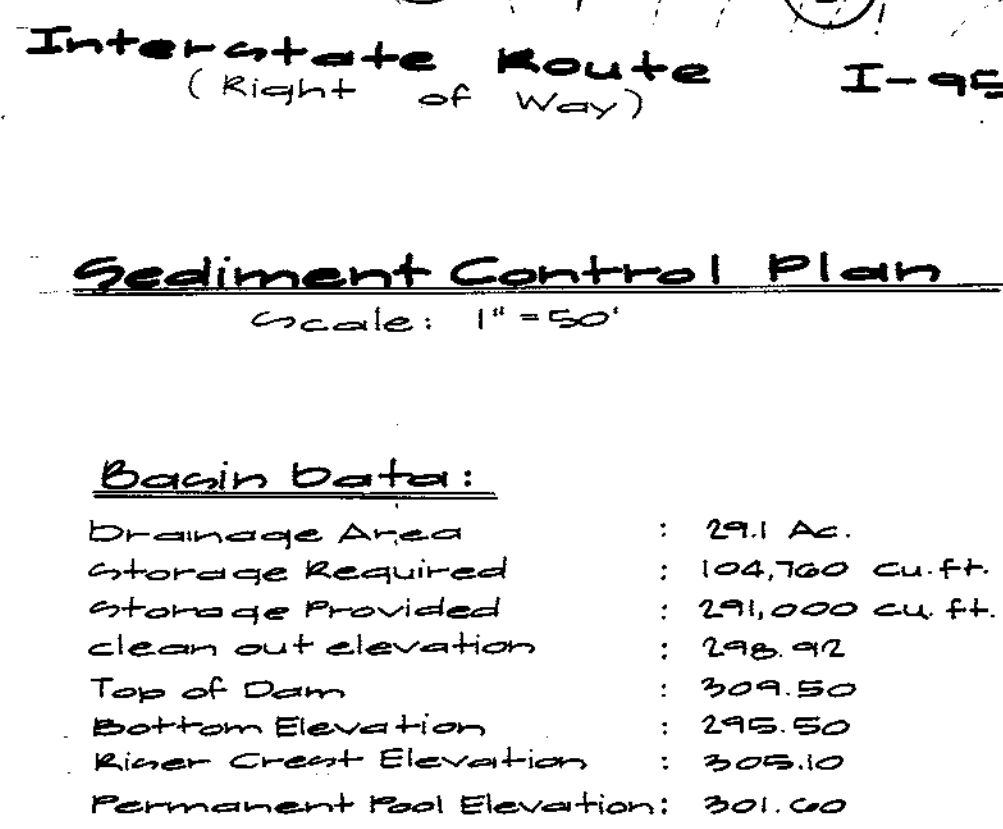 Interstate Route I-95
(Right of Way)
Sediment Control Plan
Scale: 1" = 50'
Basin Data:
Drainage Area : 29.1 Ac.
Storage Required : 104,760 cu.ft.
Storage Provided : 291,000 cu.ft.
clean out elevation : 298.92
Top of Dam : 309.50
Bottom Elevation : 295.50
Riser Crest Elevation : 305.10
Permanent Pool Elevation: 301.60